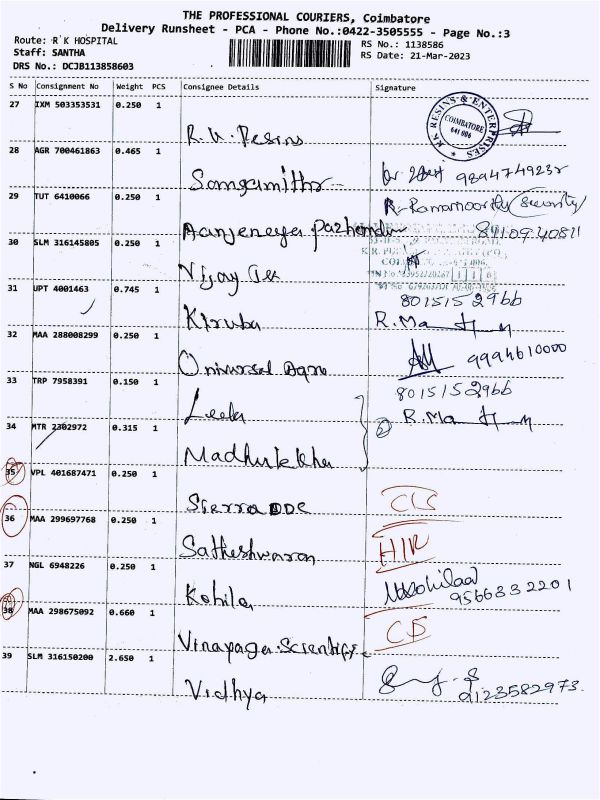 THE PROFESSIONAL COURIERS, Coimbatore
Delivery Runsheet - PCA - Phone No.:0422-3505555 - Page No.:3
Route: R K HOSPITAL
Staff: SANTHA
DRS No.: DCJB113858603
RS No.: 1138586
RS Date: 21-Mar-2023
S No Consignment No Weight PCS Consignee Details Signature
27 IXM 503353531 0.250 1
R.K. Resins
KK RESINS & ENTERPRISES COIMBATORE 641 006
28 AGR 700461863 0.465 1
Sangamithr 9894749232
29 TUT 6410066 0.250 1
R-Ramamoorthy (Security)
Aanjeneya Pazhamudir 81109 40811
30 SLM 316145805 0.250 1
Vijay
31 UPT 4001463 0.745 1
8015152966
Kiruba R.Ma
32 MAA 288008299 0.250 1
Universal 9994610000
33 TRP 7958391 0.150 1
8015152966
Leela R.Ma
34 MTR 2302972 0.315 1
Madhulekha
35 VPL 401687471 0.250 1
Sierra ODC CLS
36 MAA 299697768 0.250 1
Satheshwaran HIR
37 NGL 6948226 0.250 1
Kohila 9566332201
38 MAA 298675092 0.660 1
Vinayaga Scientific
39 SLM 316150200 2.650 1
Vidhya 9123582973